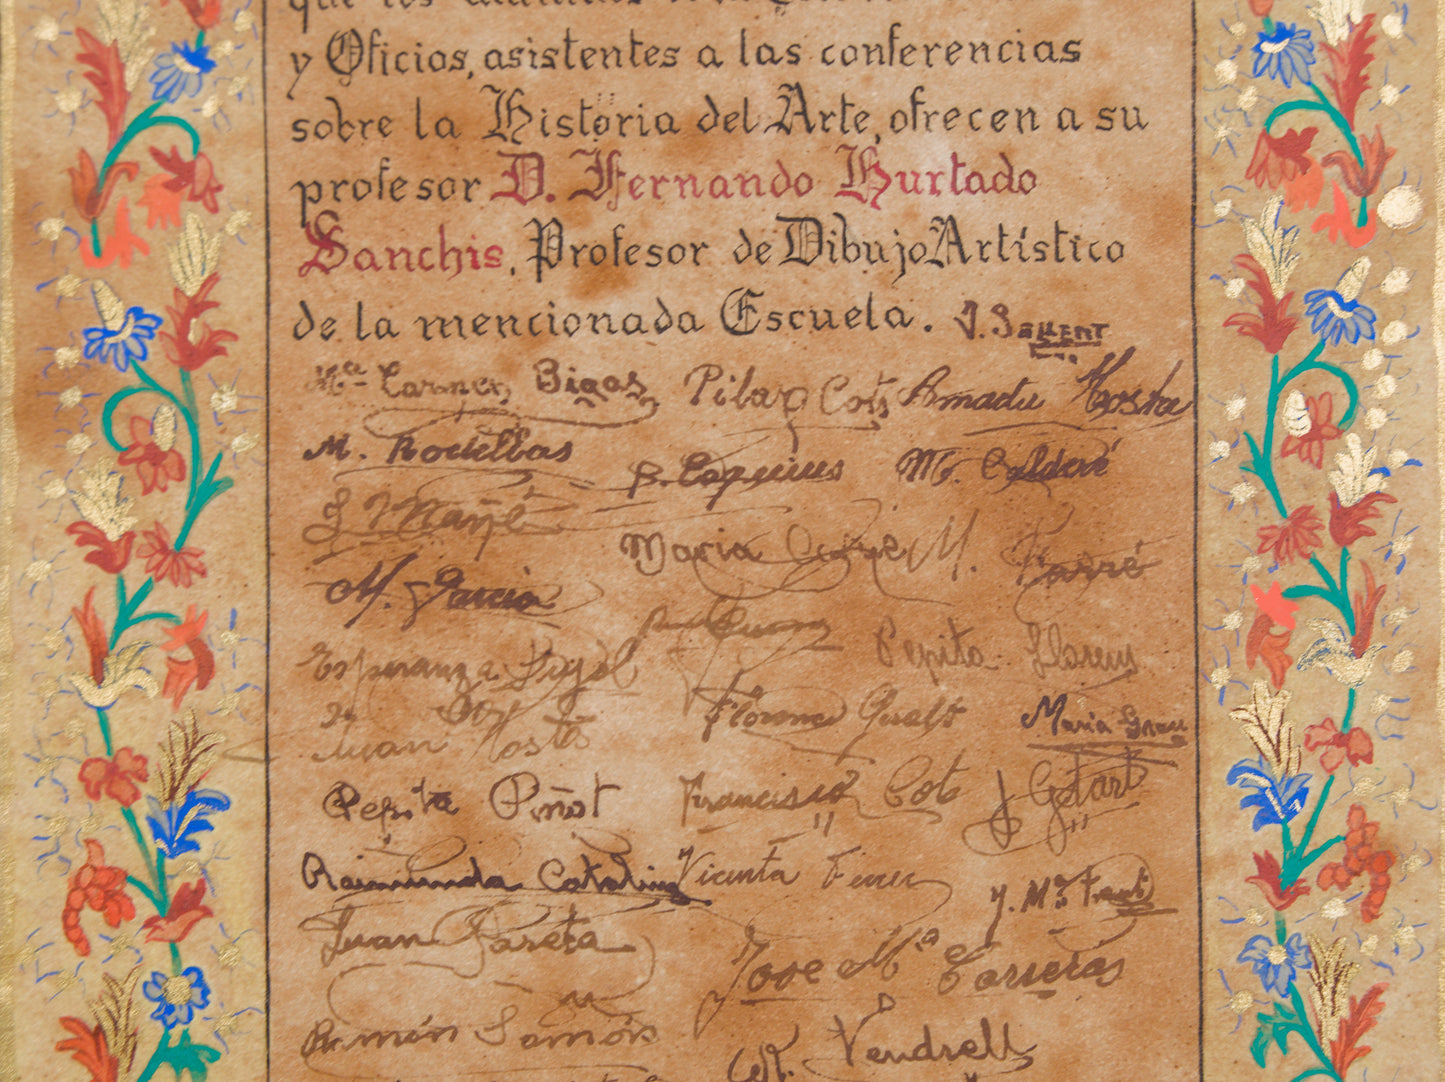 que los alumnos
y Oficios, asistentes a las conferencias
sobre la Historia del Arte, ofrecen a su
profesor D. Fernando Hurtado
Sanchis, Profesor de Dibujo Artístico
de la mencionada Escuela. J. Sallent
Mª Carmen Bigas Pilar Cots Amadeu Hosta
M. Rodellbas M. Calderé
J Mañé
Maria M. Farré
M. Garcia
Esperanza Pepita Llorens
Juan Hosta Florence Giralt Maria Grau
Pepita Piñot Francisco Cots J Gotart
Raimunda Catalina Vicenta Ferrer J. Mª Franti
Juan Pareta
Jose Mª Carreras
Ramón Samón
M. Vendrell